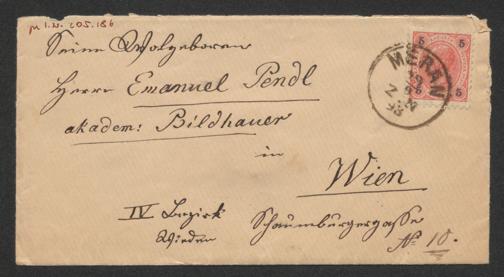 N I.N. 205.186
Seine Wolgeboren
Herrn Emanuel Pendl
akadem: Bildhauer
in
Wien
IV Bezirk
Wieden
Schaumburgergasse
No 10.
5 5
5
MERAN